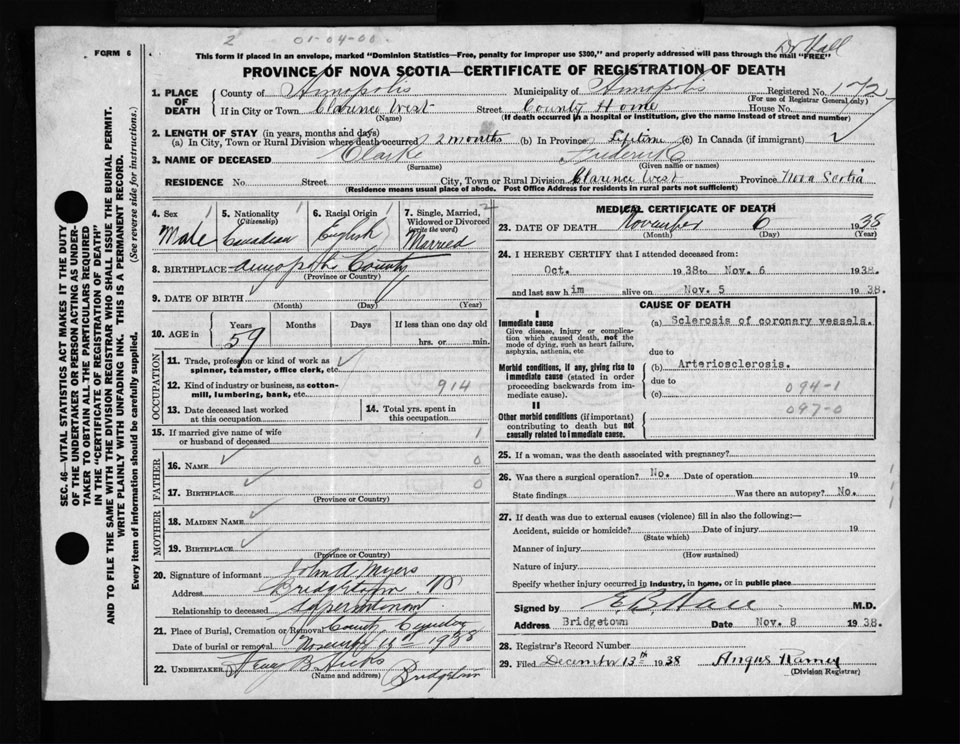 2 01-04-00 Dr Hall
FORM 6
This form if placed in an envelope, marked "Dominion Statistics—Free, penalty for improper use $300," and properly addressed will pass through the mail "FREE"
PROVINCE OF NOVA SCOTIA—CERTIFICATE OF REGISTRATION OF DEATH
SEC. 46—VITAL STATISTICS ACT MAKES IT THE DUTY
OF THE UNDERTAKER OR PERSON ACTING AS UNDER-
TAKER TO OBTAIN ALL THE PARTICULARS REQUIRED
IN THE "CERTIFICATE OF REGISTRATION OF DEATH"
AND TO FILE THE SAME WITH THE DIVISION REGISTRAR WHO SHALL ISSUE THE BURIAL PERMIT.
WRITE PLAINLY WITH UNFADING INK. THIS IS A PERMANENT RECORD.
Every item of information should be carefully supplied. (See reverse side for instructions.)
1. PLACE OF DEATH
County of Annapolis Municipality of Annapolis Registered No. 172
(For use of Registrar General only)
If in City or Town Clarence West Street County Home House No.
(Name) (If death occurred in a hospital or institution, give the name instead of street and number)
2. LENGTH OF STAY (in years, months and days)
(a) In City, Town or Rural Division where death occurred 2 months (b) In Province Lifetime (c) In Canada (if immigrant)
3. NAME OF DECEASED Clarke Frederick
(Surname) (Given name or names)
RESIDENCE No. Street City, Town or Rural Division Clarence West Province Nova Scotia
(Residence means usual place of abode. Post Office Address for residents in rural parts not sufficient)
4. Sex 1 Male
5. Nationality 1 (Citizenship) Canadian
6. Racial Origin 1 English
7. Single, Married, 2 Widowed or Divorced (write the word) Married
8. BIRTHPLACE Annapolis County
(Province or County)
9. DATE OF BIRTH
(Month) (Day) (Year)
10. AGE in Years Months Days If less than one day old
59 hrs. or min.
OCCUPATION
11. Trade, profession or kind of work as
spinner, teamster, office clerk, etc.
12. Kind of industry or business, as cotton-
mill, lumbering, bank, etc. 914
13. Date deceased last worked
at this occupation
14. Total yrs. spent in
this occupation
15. If married give name of wife
or husband of deceased 1
FATHER
16. NAME 0
17. BIRTHPLACE 0
(Province or Country)
MOTHER
18. MAIDEN NAME
19. BIRTHPLACE
(Province or Country)
20. Signature of informant John A Myers
Address Bridgetown NS
Relationship to deceased Superintendant
21. Place of Burial, Cremation or Removal County Cemetery
Date of burial or removal November 1938
22. UNDERTAKER B Hicks
(Name and address) Bridgetown
MEDICAL CERTIFICATE OF DEATH
23. DATE OF DEATH November 6 1938
(Month) (Day) (Year)
24. I HEREBY CERTIFY that I attended deceased from:
Oct. 1938 to Nov. 6 1938.
and last saw him alive on Nov. 5 1938.
CAUSE OF DEATH
I
Immediate cause
Give disease, injury or complica-
tion which caused death, not the
mode of dying, such as heart failure,
asphyxia, asthenia, etc
(a) Sclerosis of coronary vessels.
due to
Morbid conditions, if any, giving rise to
immediate cause (stated in order
proceeding backwards from im-
mediate cause).
(b) Arteriosclerosis.
due to 094-1
(c)
II
Other morbid conditions (if important)
contributing to death but not
causally related to immediate cause.
097-0
25. If a woman, was the death associated with pregnancy?
26. Was there a surgical operation? No. Date of operation 19
State findings Was there an autopsy? No.
27. If death was due to external causes (violence) fill in also the following:—
Accident, suicide or homicide? Date of injury 19
(State which)
Manner of injury
(How sustained)
Nature of injury
Specify whether injury occurred in industry, in home, or in public place
Signed by E.B. Hall M.D.
Address Bridgetown Date Nov. 8 1938.
28. Registrar's Record Number
29. Filed December 13th 1938 Angus Ramey
(Division Registrar)